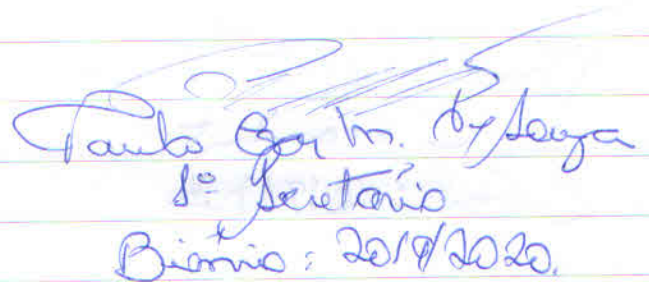 Paulo M. de Souza
1º Secretário
Biênio: 2019/2020.